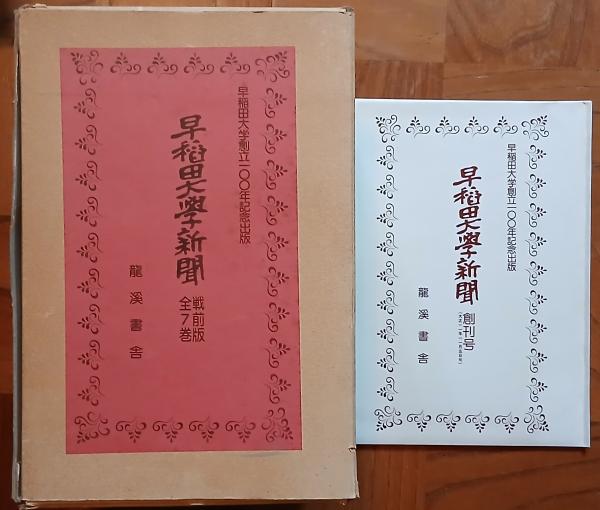 早稲田大学創立一〇〇年記念出版
早稻田大學新聞
戦前版
全7巻
龍溪書舎
早稲田大学創立一〇〇年記念出版
早稻田大學新聞
創刊号
龍溪書舎